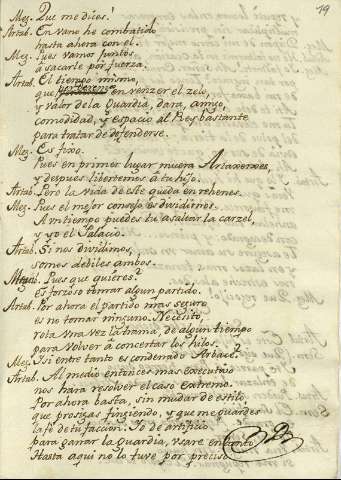 19
Meg. Que me dices!
Artab. En vano he combatido
hasta ahora con el.
Meg. Pues vamos juntos
à sacarle por fuerza.
Artab. El tiempo mismo,
que en venzer el zelo,
y valor de la Guardia, dara, amigo,
comodidad, y espacio al Rey bastante
para tratar de defenderse.
Meg. Es fixo.
Pues en primer lugar muera Artaxerxes,
y despues libertemos à tu hijo.
Artab. Pero la vida de este queda en rehenes.
Meg. Pues el mejor consejo es dividirnos.
A un tiempo puedes tu asaltar la carzel,
y yo el Palacio.
Artab. Si nos dividimos,
somos debiles ambos.
Meg. Pues que quieres?
es forzoso tomar algun partido.
Artab. Por ahora el partido mas seguro
es no tomar ninguno. Necesito,
rota una vez la trama, de algun tiempo
para volver à concertar los hilos.
Meg. Y si entre tanto es condenado Arbace?
Artab. Al medio entonces mas executivo
nos hara resolver el caso extremo.
Por ahora basta, sin mudar de estilo,
que prosigas fingiendo, y que me guardes
la fe de tu faccion. Yo de artificio
para ganar la Guardia, usare en tanto.
Hasta aqui no lo tuve por preciso